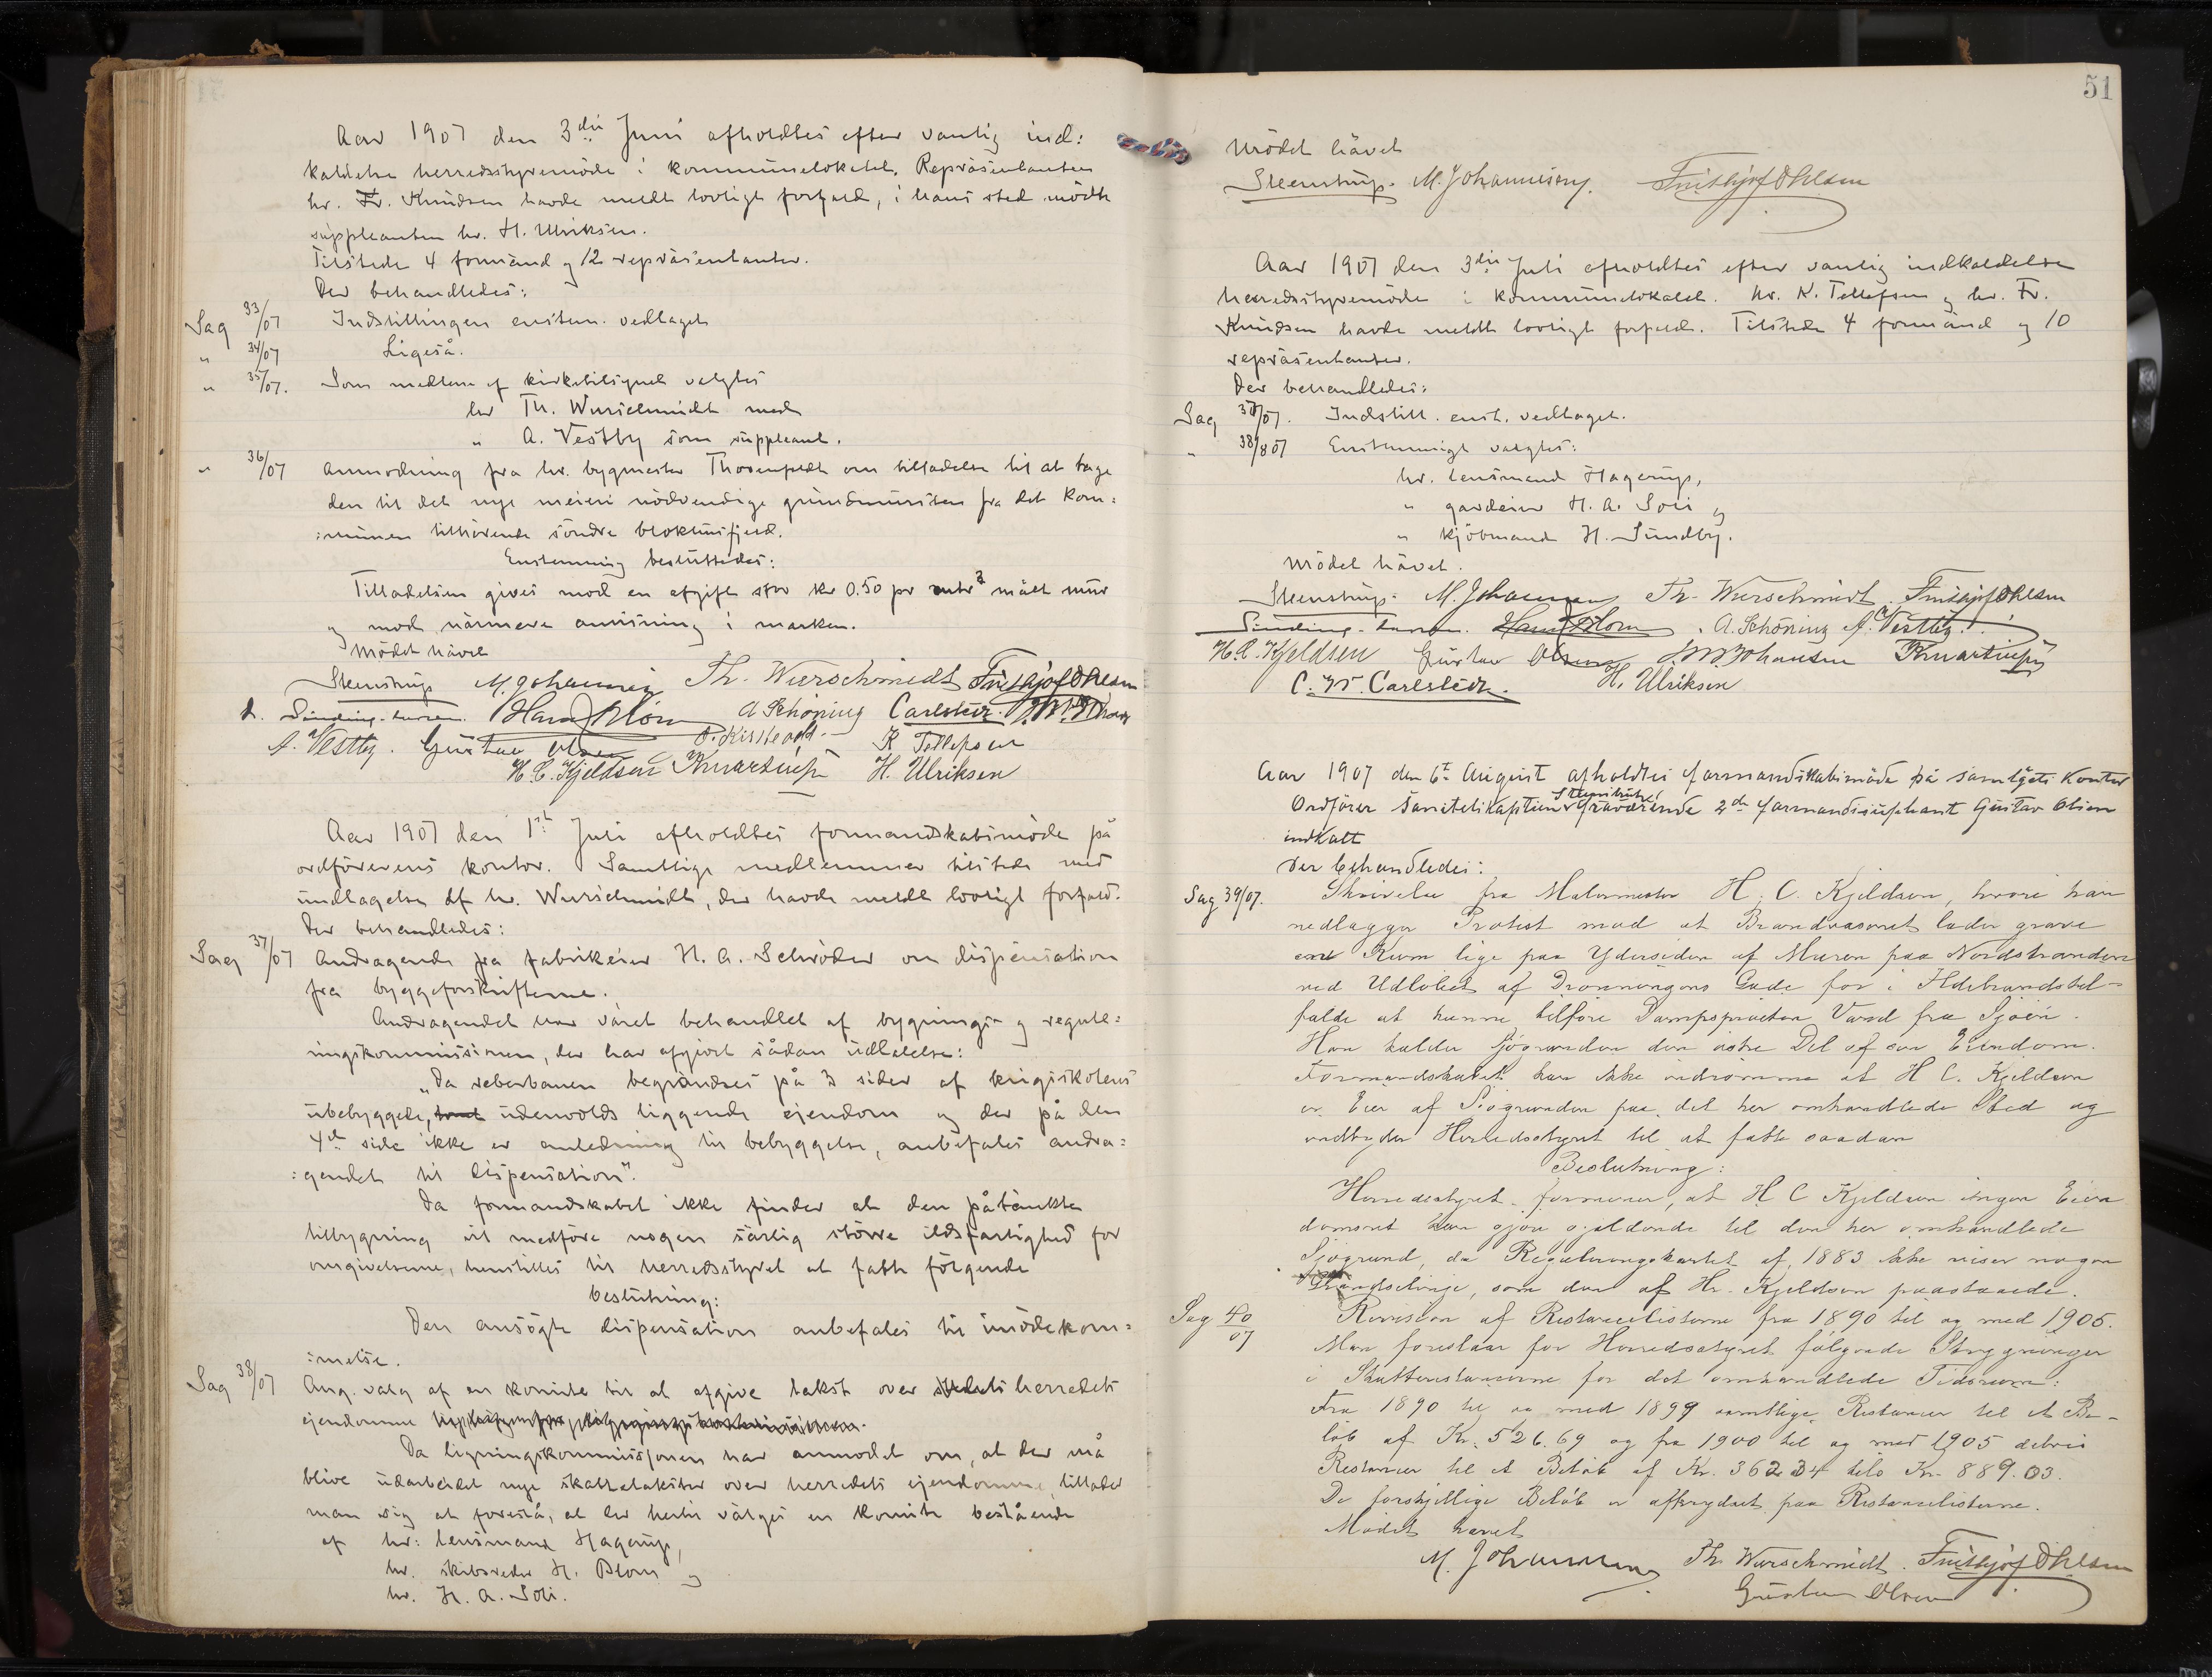 Aar 1907 den 3die Juni afholdtes efter vanlig ind:
kaldelse herredsstyremöde i kommünelokalet. Repräsentanten
hr. Fr. Knüdsen havde meldt lovligt forfald, i hans sted mödte
süppleanten hr. H. Ulriksen.
Tilstede 4 formänd og 12 repräsentanter.
Der behandledes:
Sag 33/07 Indstillingen enstem. vedtaget
" 34/07 Ligeså.
" 35/07. Som medlem af kirketilsynet valgtes
hr Th. Wurschmidt med
" A. Vestby som süppleant.
" 36/07 Anmodning fra hr. bygmester Thorenfeldt om tilladelse til at tage
den til det nye meieri nödvendige gründmürsten fra det kom:
:münen tilhörende söndre blokhüsfjeld.
Enstemmig beslüttedes:
Tilladelsen gives mod en afgift stor kr 0.50 pr mtr3 målt mür
og mod närmere anvisning i marken.
Mödet hävet
Steenstrup M. Johannesen Th. Wurschmidt Fritthjof Ohlsen
A. Sinding-Larsen. Hans Blom A Schöning Carlstedt. J. M. Johansen
A. Vestby. Güstav Olsen O. Kirkeland K Tellefsen
H. C. Kjeldsen Knartrup H. Ulriksen
Aar 1907 den 1st Juli afholdtes formandskabsmöde på
ordförerens kontor. Samtlige medlemmer tilstede med
undtagelse af hr. Wurschmidt, der havde meldt lovligt forfald.
Der behandledes:
Sag 37/07 Andragende fra fabrikeier H. A. Schröder om dispensation
fra byggeforskrifterne.
Andragendet har väret behandlet af bygnings- og regule:
ringskommissionen, der har afgivet sådan üdtalelse:
"Da reberbanen begrändses på 3 sider af krigsskolens
übebyggede, tomt üdenvolds liggende ejendom og der på den
4de side ikke er anledning til bebyggelse, anbefales andra:
:gendet til dispensation".
Da formandskabet ikke finder at den påtänkte
tilbygning vil medföre nogen särlig större ildsfarlighed for
omgivelserne, henstilles til herredsstyret at fatte fölgende
beslütning:
Den ansögte dispensation anbefales til imödekom:
:melse.
Sag 38/07 Ang. valg af en komite til at afgive takst over stedets herredets
ejendomme
Da ligningskommissjonen har anmodet om, at der må
blive üdarbeidet nye skattetakster over herredets ejendomme, tillader
man sig at foreslå, at der hertil välges en komite bestående
af hr: lensmand Hagerup,
hr. skibsreder H. Blom og
hr. H. A. Soli.
51
Mödet hävet
Steenstrup. M. Johannesen. Fritthjof Ohlsen
Aar 1907 den 3die Juli afholdtes efter vanlig indkaldelse
herredsstyremöde i kommünelokalet. hr. K. Tellefsen og hr. Fr.
Knüdsen havde meldt lovligt forfald. Tilstede 4 formänd og 10
repräsentanter.
Der behandledes:
Sag 37/07. Indstill. enst. vedtaget.
" 38/807 Enstemmigt valgtes:
hr. lensmand Hagerup,
" gardeier H. A. Soli og
" kjöbmand H. Sundby.
Mödet hävet.
Steenstrup. M. Johannesen Th. Wurschmidt. Fritthjof Ohlsen
Sinding-Larsen. Hans Blom. A. Schöning A. Vestby.
H. C. Kjeldsen Güstav Olsen J. M. Johansen Knartrup
C. W. Carlstedt. H. Ulriksen
Aar 1907 den 6te August afholdtes formandskabsmöde på samtgets Kontor
Ordförer Sanitetskaptein Steenstrup fraværende 2den formandssüpleant Güstav Olsen
indkalt
Der behandledes:
Sag 39/07. Skrivelse fra Malermester H. C. Kjeldsen, hvori han
nedlægger Protest mod at Brandvæsenet lader grave
en Kum lige paa Ydersiden af Muren paa Nordstranden
ved Udlöbet af Dronningens Gade for i Ildebrandstil-
fälde at kunne tilföre Dampspröiten Vand fra Sjöen.
Han kalder Sjögrunden den östre Del af sin Eiendom.
Formandskabet kan ikke indrömme at H C. Kjeldsen
er Eier af Sjögrunden paa det her omhandlede Sted og
indbyder Herredsstyret til at fatte saadan
Beslutning:
Herredsstyret formener, at H C Kjeldsen ingen Eien
domsret kan gjöre gjeldende til den her omhandlede
Sjögrund, da Reguleringskartet af 1883 ikke viser nogen
Grændselinje, som den af Hr. Kjeldsen paastaaede.
Sag 40/07 Revision af Restancelisterne fra 1890 til og med 1905.
Man foreslaar for Herredsstyret fölgende Strygninger
i Skatterestancerne for det omhandlede Tidsrum:
Fra 1890 til og med 1899 samtlige Restancer til et Be-
löb af Kr. 526.69 og fra 1900 til og med 1905 delvis
Restancer til et Belöb af Kr. 362.34 tils Kr. 889.03.
De forskjellige Belöb er afkrydset paa Restancelisterne.
Mödet hævet
M. Johannesen Th. Wurschmidt. Fritthjof Ohlsen
Güstav Olsen